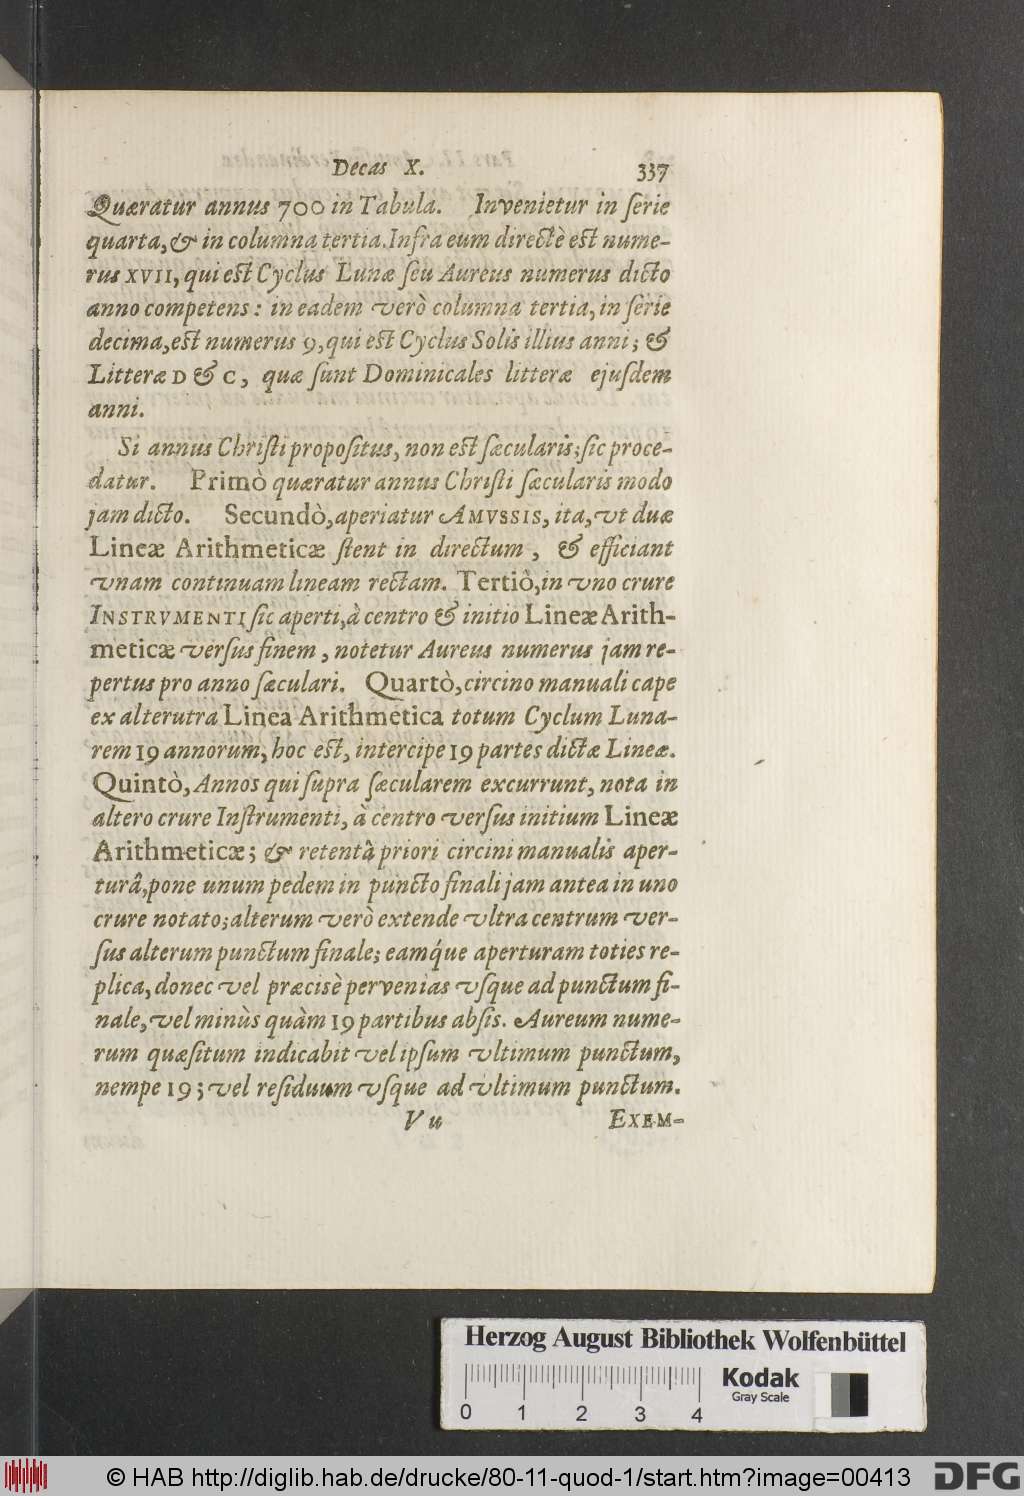 Decas X. 337
Quæratur annus 700 in Tabula. Invenietur in ſerie
quarta, & in columna tertia. Infra eum directè est nume-
rus XVII, qui est Cyclus Lunæ ſeu Aureus numerus dicto
anno competens: in eadem verò columna tertia, in ſerie
decima, est numerus 9, qui est Cyclus Solis illius anni; &
Litteræ D & C, quæ ſunt Dominicales litteræ ejuſdem
anni.
Si annus Chriſti propoſitus, non est ſæcularis; ſic proce-
datur. Primò quæratur annus Chriſti ſæcularis modo
jam dicto. Secundò, aperiatur AMVSSIS, ita, vt duæ
Lineæ Arithmeticæ ſtent in directum, & efficiant
vnam continuam lineam rectam. Tertiò, in vno crure
INSTRVMENTI ſic aperti, à centro & initio Lineæ Arith-
meticæ verſus finem, notetur Aureus numerus jam re-
pertus pro anno ſæculari. Quartò, circino manuali cape
ex alterutra Linea Arithmetica totum Cyclum Luna-
rem 19 annorum, hoc est, intercipe 19 partes dictæ Lineæ.
Quintò, Annos qui ſupra ſæcularem excurrunt, nota in
altero crure Inſtrumenti, à centro verſus initium Lineæ
Arithmeticæ; & retentâ priori circini manualis aper-
turâ, pone unum pedem in puncto finali jam antea in uno
crure notato; alterum verò extende vltra centrum ver-
ſus alterum punctum finale; eamq́ue aperturam toties re-
plica, donec vel præcisè pervenias vſque ad punctum fi-
nale, vel minùs quàm 19 partibus abſis. Aureum nume-
rum quæſitum indicabit vel ipſum vltimum punctum,
nempe 19; vel reſiduum vſque ad vltimum punctum.
V u EXEM-
Herzog August Bibliothek Wolfenbüttel
Kodak
Gray Scale
0 1 2 3 4
© HAB http://diglib.hab.de/drucke/80-11-quod-1/start.htm?image=00413
DFG